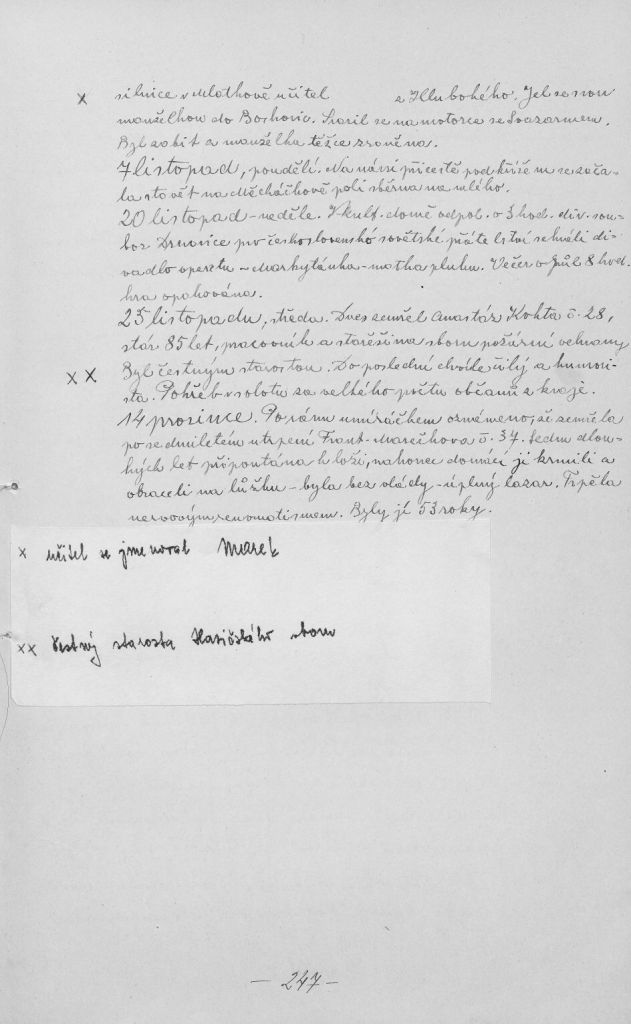 x silnice v Mlatkově učitel z Hlubokého. Jel se svou
manželkou do Boskovic. Srazil se na motorce se Svazarmem.
Byl zabit a manželka těžce zraněna.
7 listopad, pondělí. Na návsi při cestě pod křížem se zača-
la stavět na Měcháčkově poli sběrna na mléko.
20 listopad - neděle. V kult. domě odpol. o 3 hod. div. sou-
bor Drnovice pro československo sovětské přátelství sehráli di-
vadlo operetu - Markytánka - matka pluku. Večer o půl 8 hod.
hra opakována.
23 listopadu, středa. Dnes zemřel Anastáz Kohta č. 28,
stár 85 let, pracovník a starešina sboru požární ochrany
xx Byl čestným starostou. Do poslední chvíle čilý a humori-
sta. Pohřeb v sobotu za velkého počtu občanů z kraje.
14 prosince. Po ránu umíráčkem oznámeno, že zemřela
po sedmiletém utrpení Frant. Marečkova č. 37. Sedm dlou-
hých let připoutána k loži, nakonec domácí ji krmili a
obraceli na lůžku - byla bez vlády - úplný lazar. Trpěla
nervovým reumatismem. Bylo jí 53 roky.
x učitel se jmenoval Marek
xx čestný starosta Hasičského sboru
- 247 -